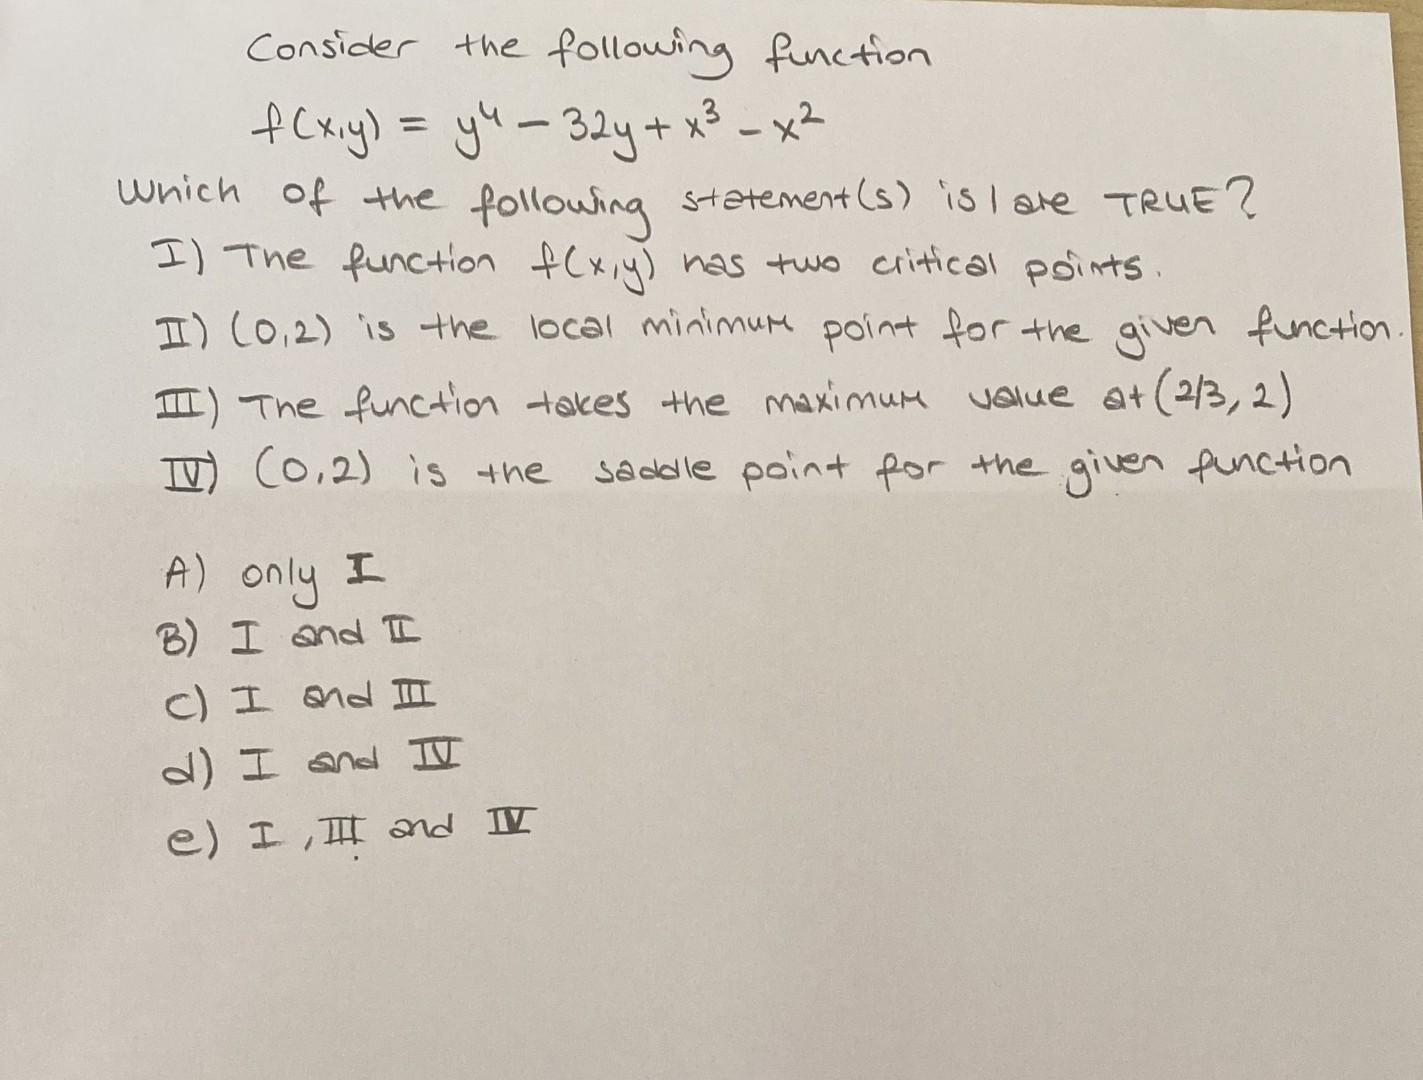 Consider the following function
f(x,y) = y⁴ - 32y + x³ - x²
Which of the following statement(s) is/are TRUE?
I) The function f(x,y) has two critical points.
II) (0,2) is the local minimum point for the given function.
III) The function takes the maximum value at (2/3, 2)
IV) (0,2) is the saddle point for the given function
A) only I
B) I and II
C) I and III
d) I and IV
e) I, III and IV